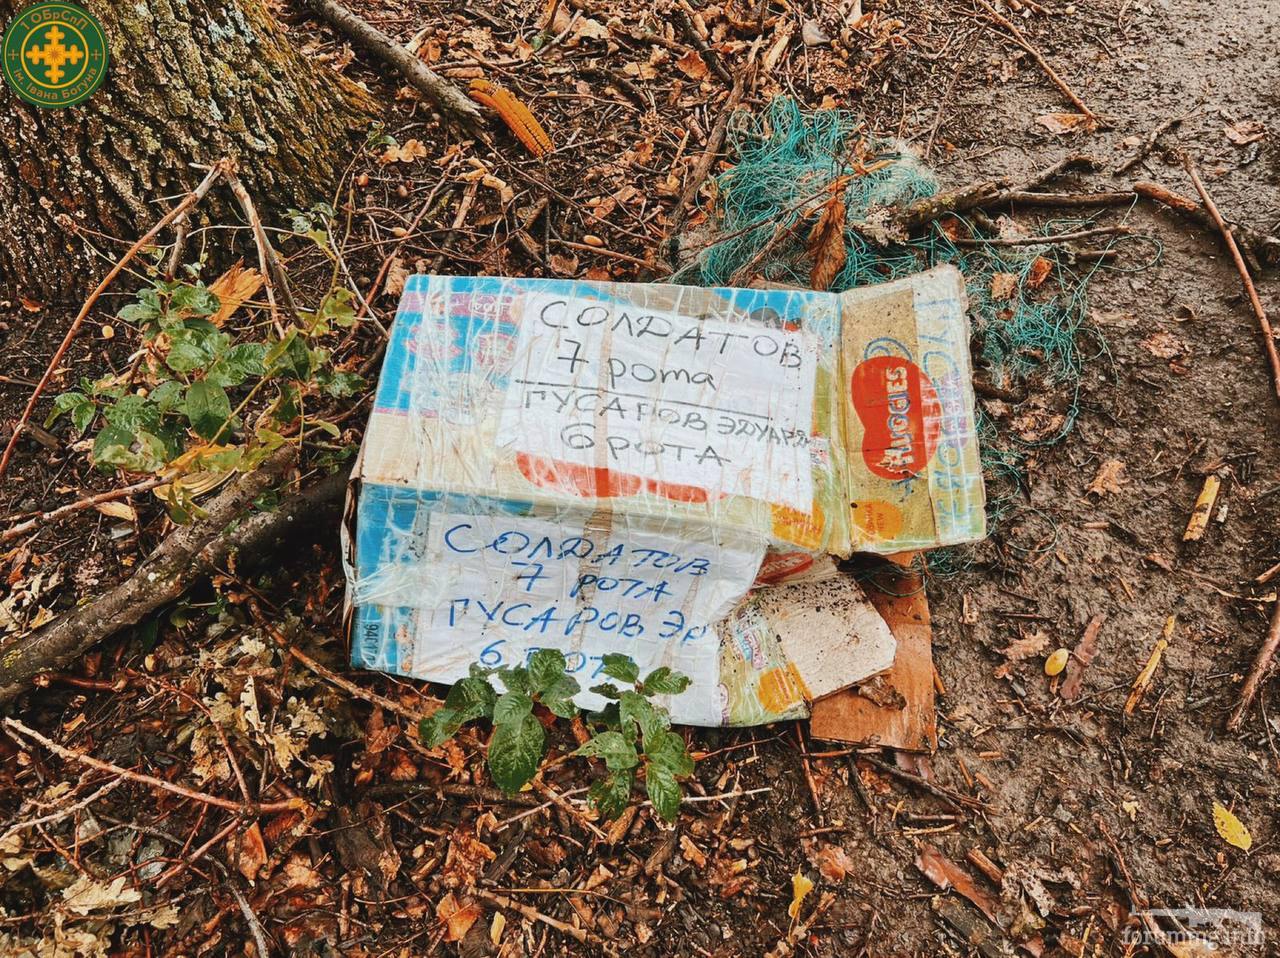 1 ОБрСпП
ім. Івана Богуна
СОЛДАТОВ
7 рота
ГУСАРОВ ЭДУАРД
6 РОТА
HUGGIES
NEW
СОЛДАТОВ
7 РОТА
ГУСАРОВ ЭД
6 РОТА
forummg.info